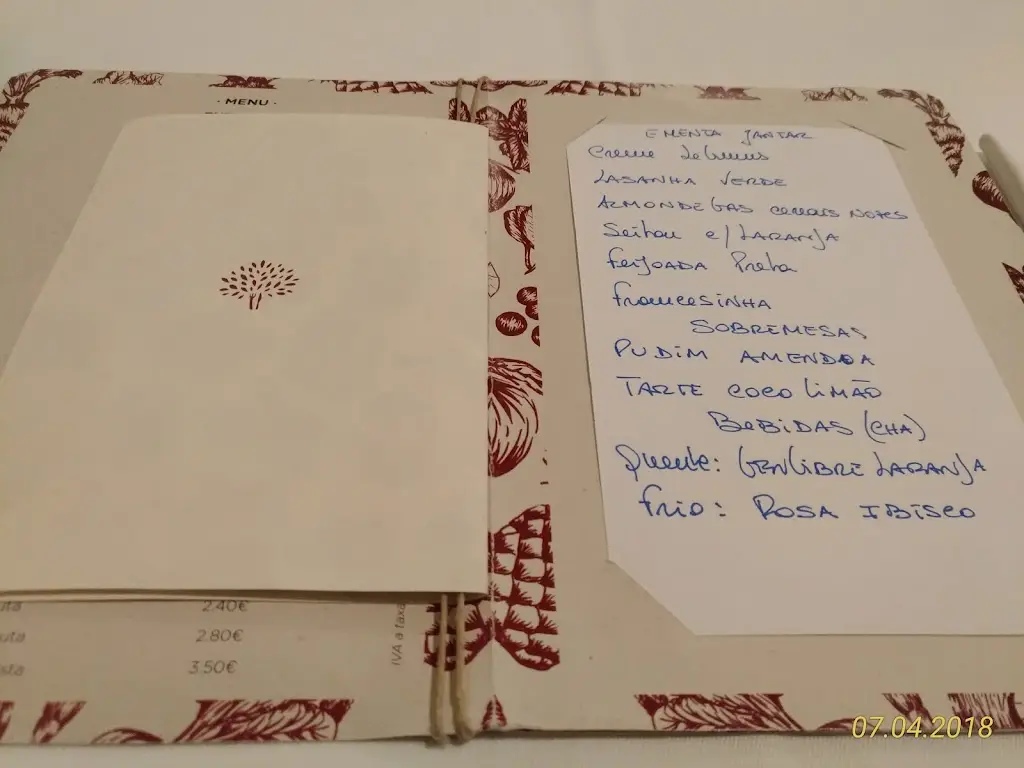 · MENU ·
uta 2.40€
uta 2.80€
sta 3.50€
IVA a taxa
EMENTA JANTAR
Creme Legumes
LASANHA VERDE
ALMONDEGAS cereais NOZES
Seitan c/ LARANJA
FeiJOADA Preta
francesinha
SOBREMESAS
PUDIM AMENDOA
TARTE COCO LIMÃO
BEBIDAS (CHA)
Quente: GENGIBRE LARANJA
frio: ROSA IBISCO
07.04.2018